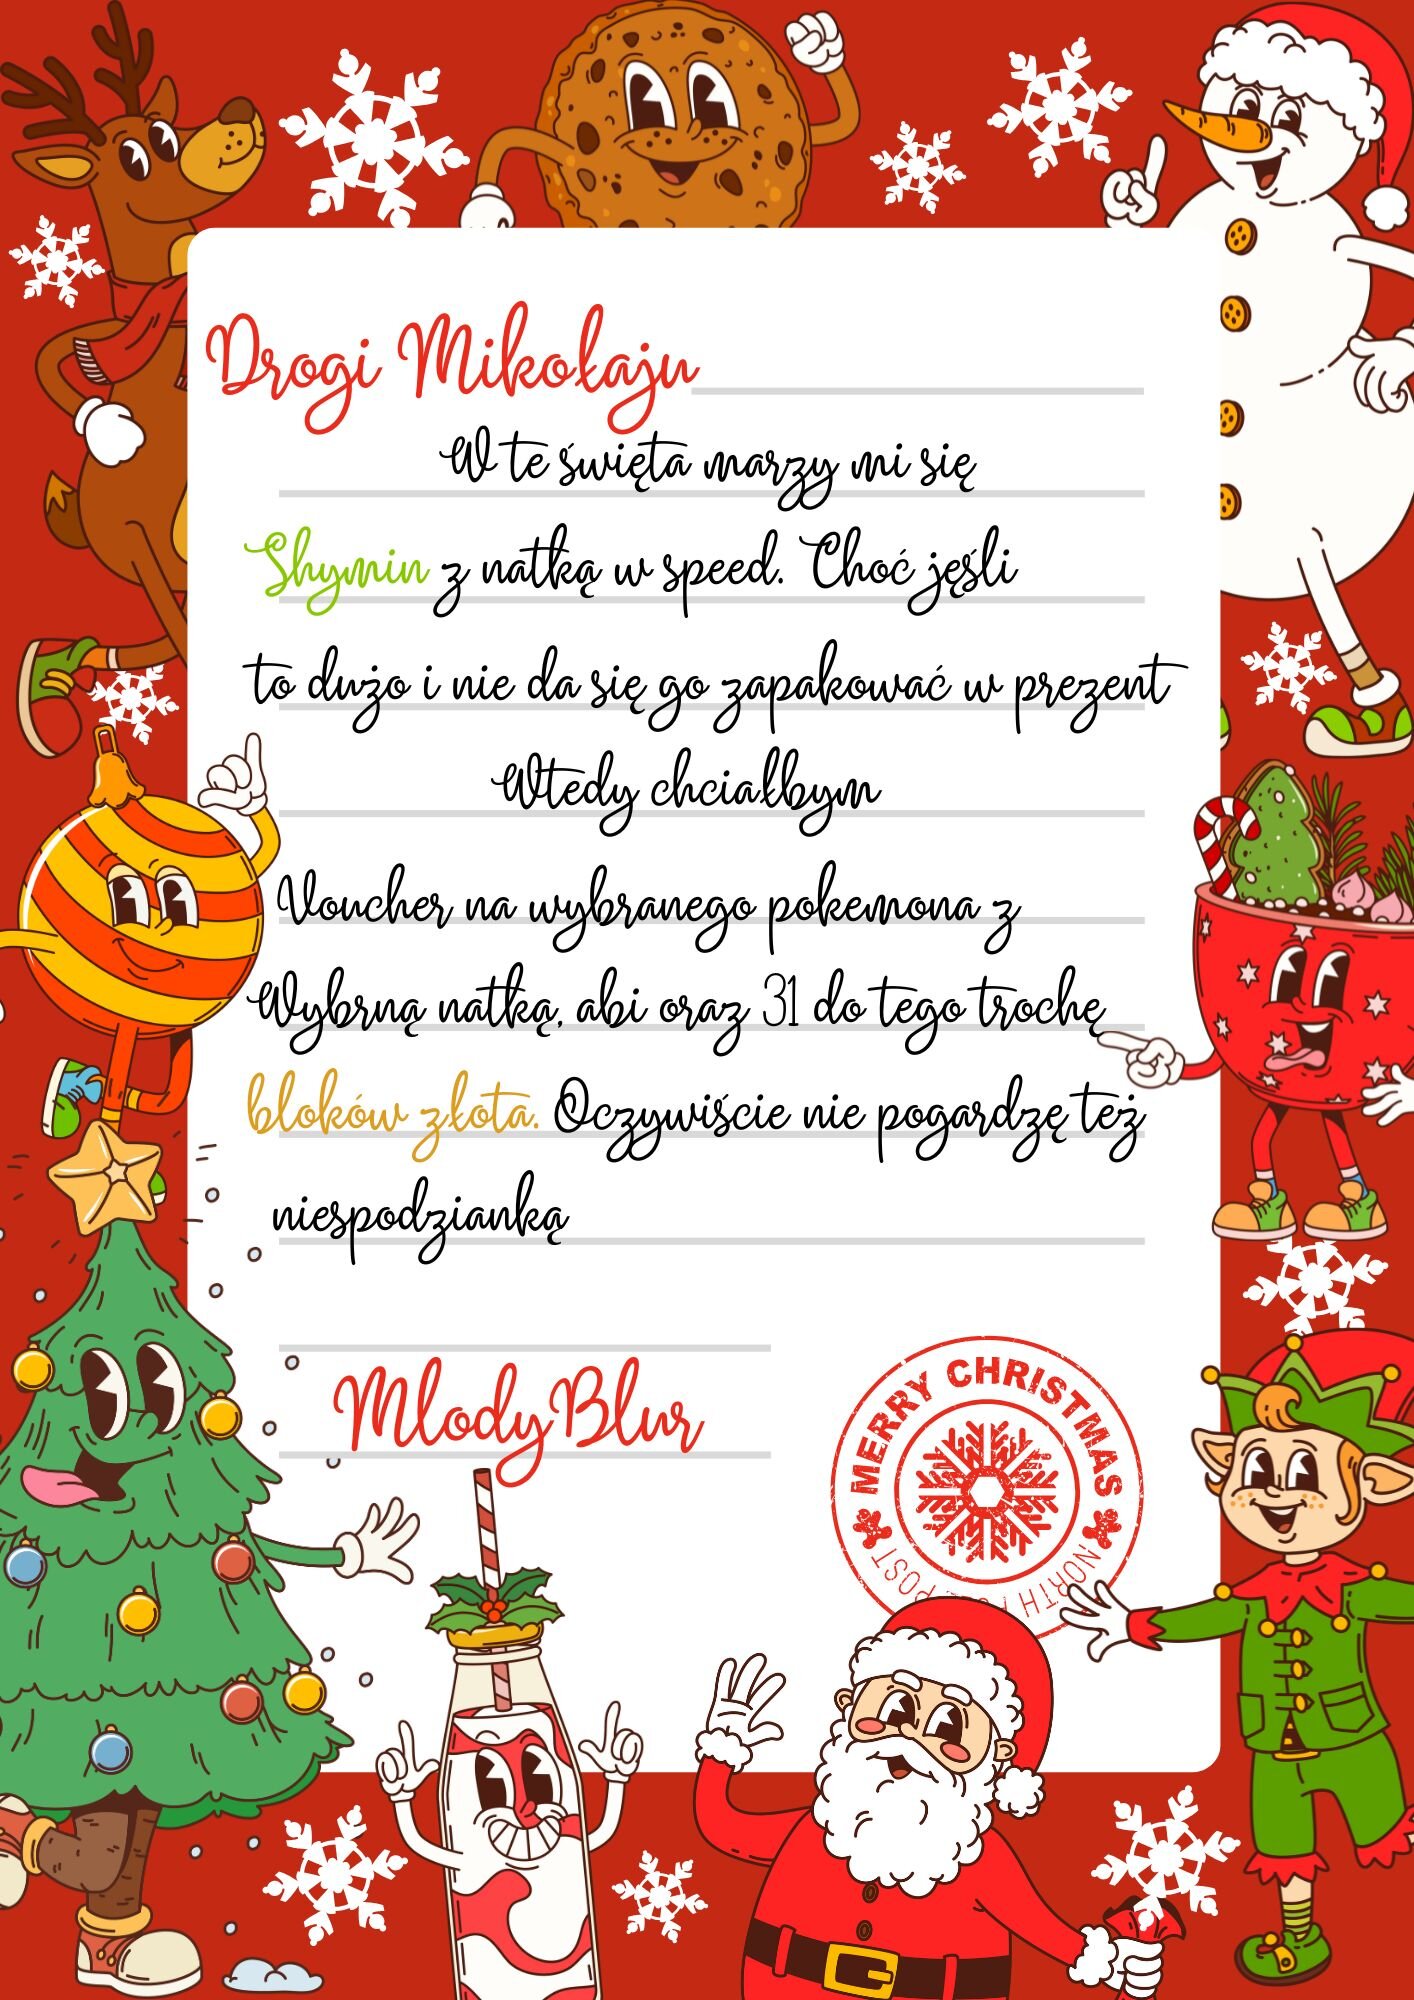 Drogi Mikołaju
W te święta marzy mi się
Shymin z natką w speed. Choć jęśli
to dużo i nie da się go zapakować w prezent
Wtedy chciałbym
Voucher na wybranego pokemona z
Wybrną natką, abi oraz 31 do tego trochę
bloków złota. Oczywiście nie pogardzę też
niespodzianką
MłodyBlur
MERRY CHRISTMAS
NORTH POST